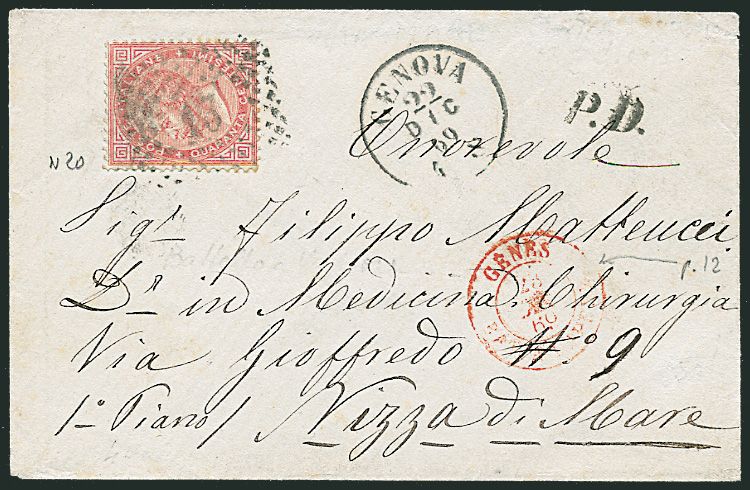 POSTE ITALIANE
QUARANTA
13
GENOVA
22
DIC
69
P.D.
N 20
Onorevole
Sigr Filippo Matteucci
GÊNES
p. 12
Dr in Medicina, Chirurgia
Via Gioffredo No 9
/1o Piano/ Nizza di Mare